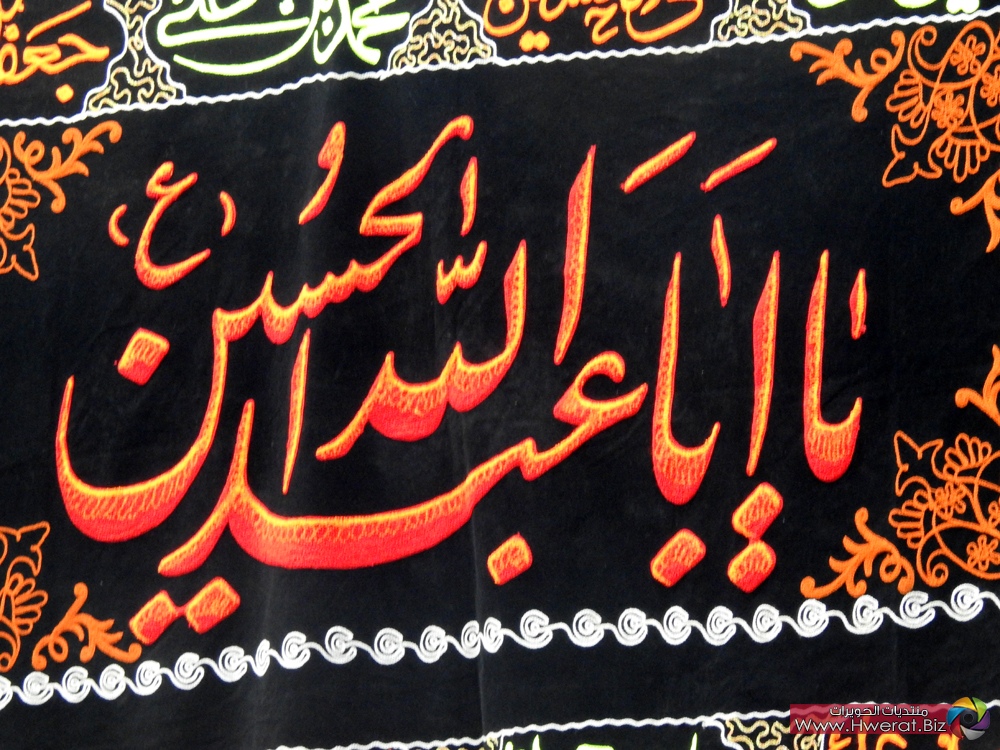 محمد بن علي
يا ابا عبد الله الحسين (ع)
منتديات الحويرات
www.Hwerat.Biz